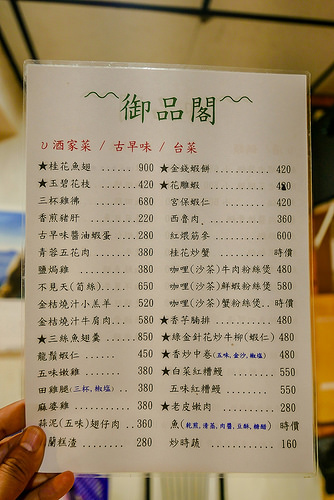 御品閣
酒家菜 / 古早味 / 台菜
★桂花魚翅 ...... 900
★玉碧花枝 ...... 420
三杯雞佛 ...... 680
香煎豬肝 ...... 220
古早味醬油蝦蛋 ... 280
青蒜五花肉 ...... 380
鹽焗雞 ...... 380
不見天(筍絲) ..... 650
金桔燒汁小羔羊 ... 520
金桔燒汁牛肩肉 ... 580
★三絲魚翅羹 ...... 850
龍鬚蝦仁 ...... 450
五味嫩雞 ...... 380
田雞腿(三杯,椒塩) .. 380
麻婆雞 ...... 380
蒜泥(五味)翅仔肉 ... 360
蘭糕渣 ...... 280
★金錢蝦餅 ........... 420
★花雕蝦 ...........
宮保蝦仁 ........... 420
西魯肉 ........... 360
紅煨筋參 ........... 600
桂花炒蟹 ........... 時價
咖哩(沙茶)牛肉粉絲煲 480
咖哩(沙茶)鮮蝦粉絲煲 580
咖哩(沙茶)蟹粉絲煲.. 時價
★香芋腩排 ........... 480
★綠金針花炒牛柳(蝦仁) 480
★香炒中卷(五味,金沙,椒塩) 480
★白菜紅糟鰻 ........ 550
五味紅糟鰻 ........ 550
★老皮嫩肉 ........... 280
魚(乾煎,清蒸,肉醬,豆酥,糖醋) 時價
炒時蔬 ........... 160